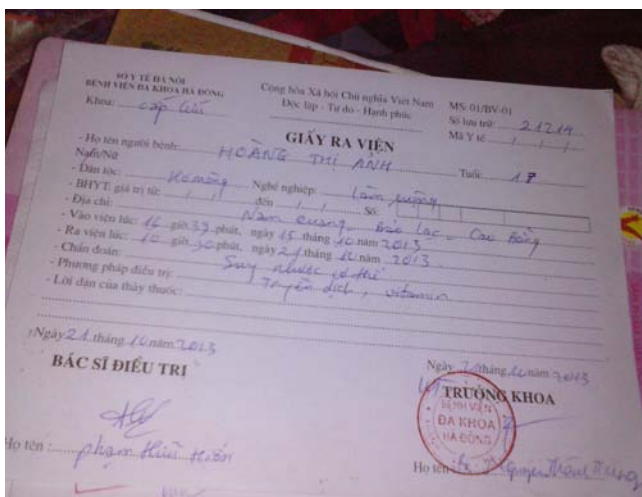 SỞ Y TẾ HÀ NỘI
BỆNH VIỆN ĐA KHOA HÀ ĐÔNG
Khoa: cấp cứu
Cộng hòa Xã hội Chủ nghĩa Việt Nam
Độc lập - Tự do - Hạnh phúc
MS: 01/BV-01
Số lưu trữ: 21214
Mã Y tế / / /
GIẤY RA VIỆN
- Họ tên người bệnh: HOÀNG THỊ ÁNH Tuổi: 18
Nam/Nữ
- Dân tộc: Hơmông Nghề nghiệp: Làm ruộng
- BHYT: giá trị từ: / / đến / / Số:
- Địa chỉ: Nam Quang - Bảo Lạc - Cao Bằng
- Vào viện lúc: 16 giờ 39 phút, ngày 15 tháng 10 năm 2013
- Ra viện lúc: 10 giờ 30 phút, ngày 21 tháng 10 năm 2013
- Chẩn đoán: Suy nhược cơ thể
- Phương pháp điều trị: Truyền dịch, vitamin
- Lời dặn của thầy thuốc:
Ngày 21 tháng 10 năm 2013
BÁC SĨ ĐIỀU TRỊ
Họ tên: phạm Hữu
Ngày 21 tháng 10 năm 2013
TRƯỞNG KHOA
BỆNH VIỆN
ĐA KHOA
HÀ ĐÔNG
Họ tên: Nguyễn Thành